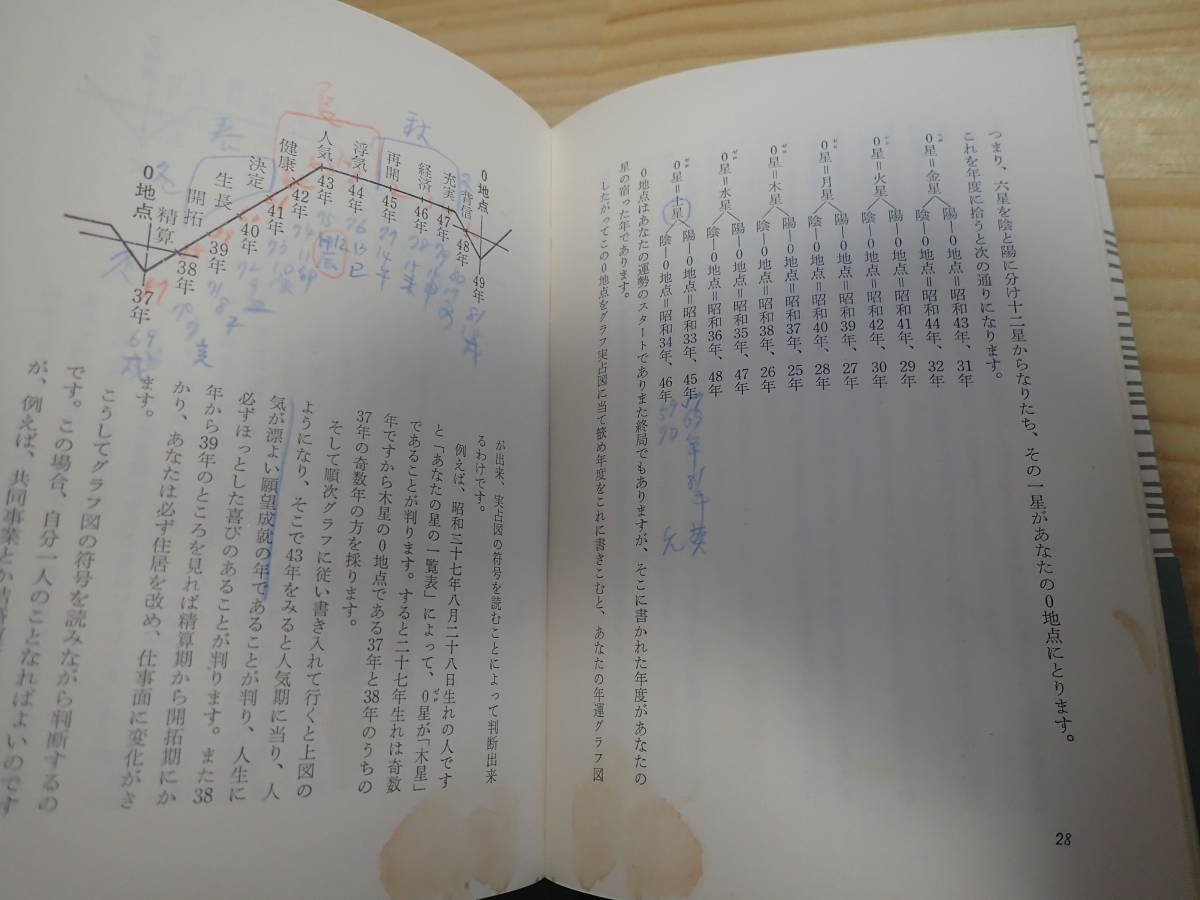 つまり、六星を陰と陽に分け十二星からなりたち、その一星があなたの0地点にとります。
これを年度に拾うと次の通りになります。
0星=金星
陽—0地点=昭和43年、31年
陰—0地点=昭和44年、32年
0星=火星
陽—0地点=昭和41年、29年
陰—0地点=昭和42年、30年
0星=月星
陽—0地点=昭和39年、27年
陰—0地点=昭和40年、28年
0星=木星
陽—0地点=昭和37年、25年
陰—0地点=昭和38年、26年
0星=水星
陽—0地点=昭和35年、47年
陰—0地点=昭和36年、48年
0星=土星
陽—0地点=昭和33年、45年
陰—0地点=昭和34年、46年
0地点はあなたの運勢のスタートでありまた終局でもありますが、そこに書かれた年度があなたの
星の宿った年であります。
したがってこの0地点をグラフ実占図に当て嵌め年度をこれに書きこむと、あなたの年運グラフ図
28
が出来、実占図の符号を読むことによって判断出来
るわけです。
例えば、昭和三十七年八月二十八日生れの人です
と「あなたの星の一覧表」によって、0星が「木星」
であることが判ります。すると二十七年生れは奇数
年ですから木星の0地点である37年と38年のうちの
37年の奇数年の方を採ります。
そして順次グラフに従い書き入れて行くと上図の
ようになり、そこで43年をみると人気期に当り、人
気が漂よい願望成就の年であることが判り、人生に
必ずほっとした喜びのあることが判ります。また38
年から39年のところを見れば精算期から開拓期にか
かり、あなたは必ず住居を改め、仕事面に変化がき
ます。
こうしてグラフ図の符号を読みながら判断するの
です。この場合、自分一人のことなればよいのです
が、例えば、共同事業とか
0地点 49年
背信 48年
充実 47年
経済 46年
再開 45年
浮気 44年
人気 43年
健康 42年
決定 41年
生長 40年
開拓 39年
精算 38年
0地点 37年
秋
夏
春
冬